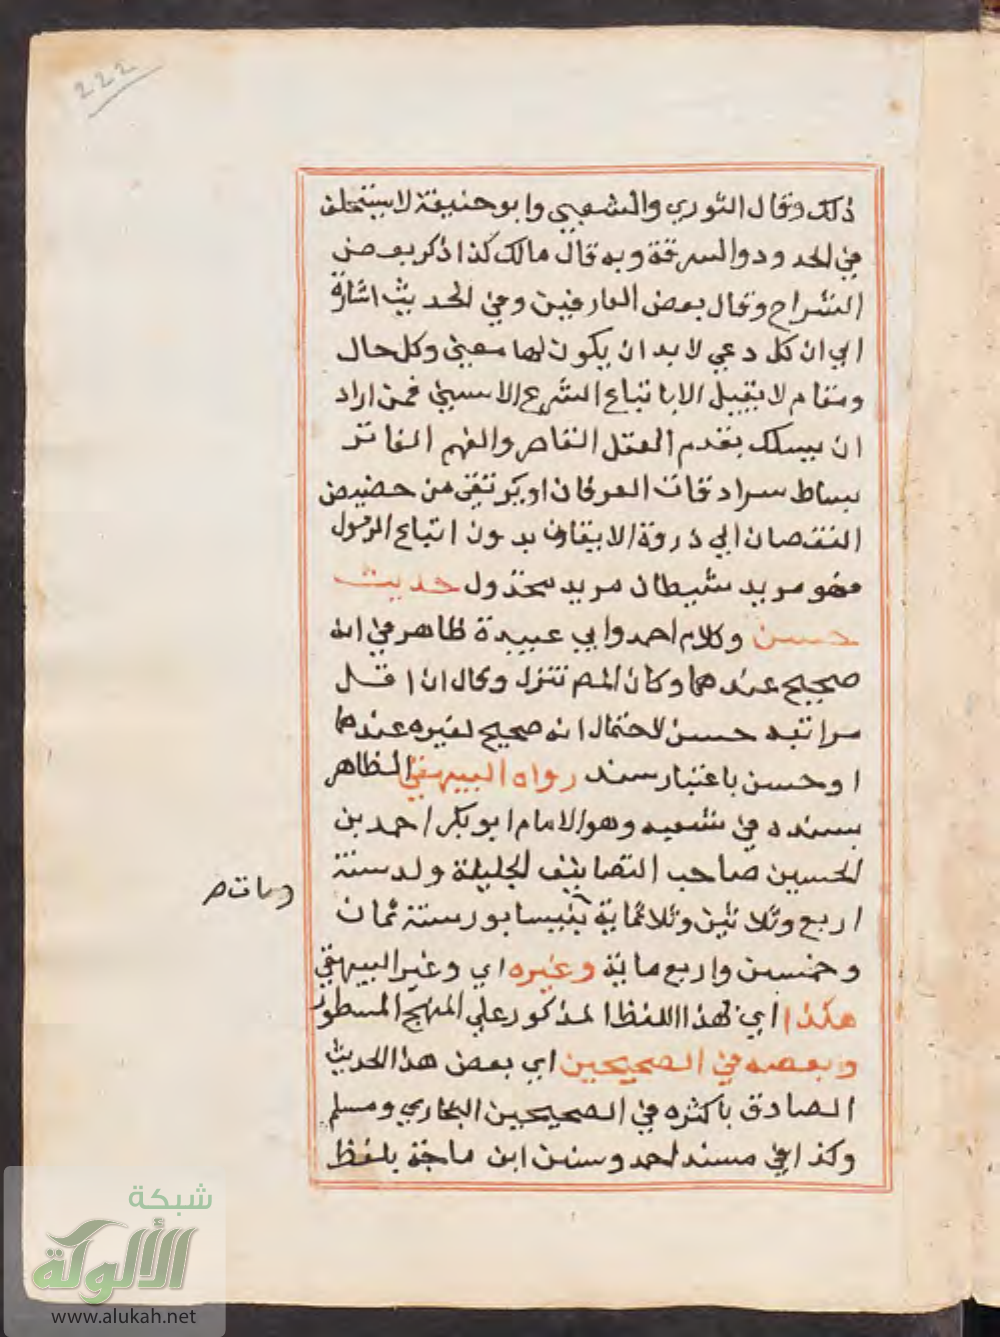 222
ذلك وقال الثوري والشعبي وابو حنيفة لا يستحلف
في الحدود والسرقة وبه قال مالك كذا ذكر بعض
الشراح وقال بعض العارفين وفي الحديث اشارة
الي ان كل دعي لا بد ان يكون لها معني وكل حال
ومقام لا يقبل الا باتباع الشرع الاسني فمن اراد
ان يسلك بقدم العقل القاصر والفهم الفاتر
بساط سرادقات العرفان او يرتقي من حضيض
النقصان الي ذروة الايقان بدون اتباع الرسول
فهو مريد شيطان مريد مخذول حديث
حسن وكلام احمد وابي عبيدة ظاهر في انه
صحيح عندهما وكان المصـ تنزل وقال ان اقل
مراتبه حسن لاحتمال انه صحيح لغيره عندهما
او حسن باعتبار سند رواه البيهقي الظاهر
بسنده في شعبه وهو الامام ابو بكر احمد بن
الحسين صاحب التصانيف الجليلة ولد سنة
اربع وثلاثين وثلاثماية بنيسابور سنة ثمان
ومات صـ
وخمسين واربع ماية وغيره اي وغير البيهقي
هكذا اي بهذا اللفظ المذكور علي المنهج المسطور
وبعضه في الصحيحين اي بعض هذا الحديث
الصادق باكثره في الصحيحين البخاري ومسلم
وكذا في مسند احمد وسنن ابن ماجة بلفظ
شبكة
الألوكة
www.alukah.net